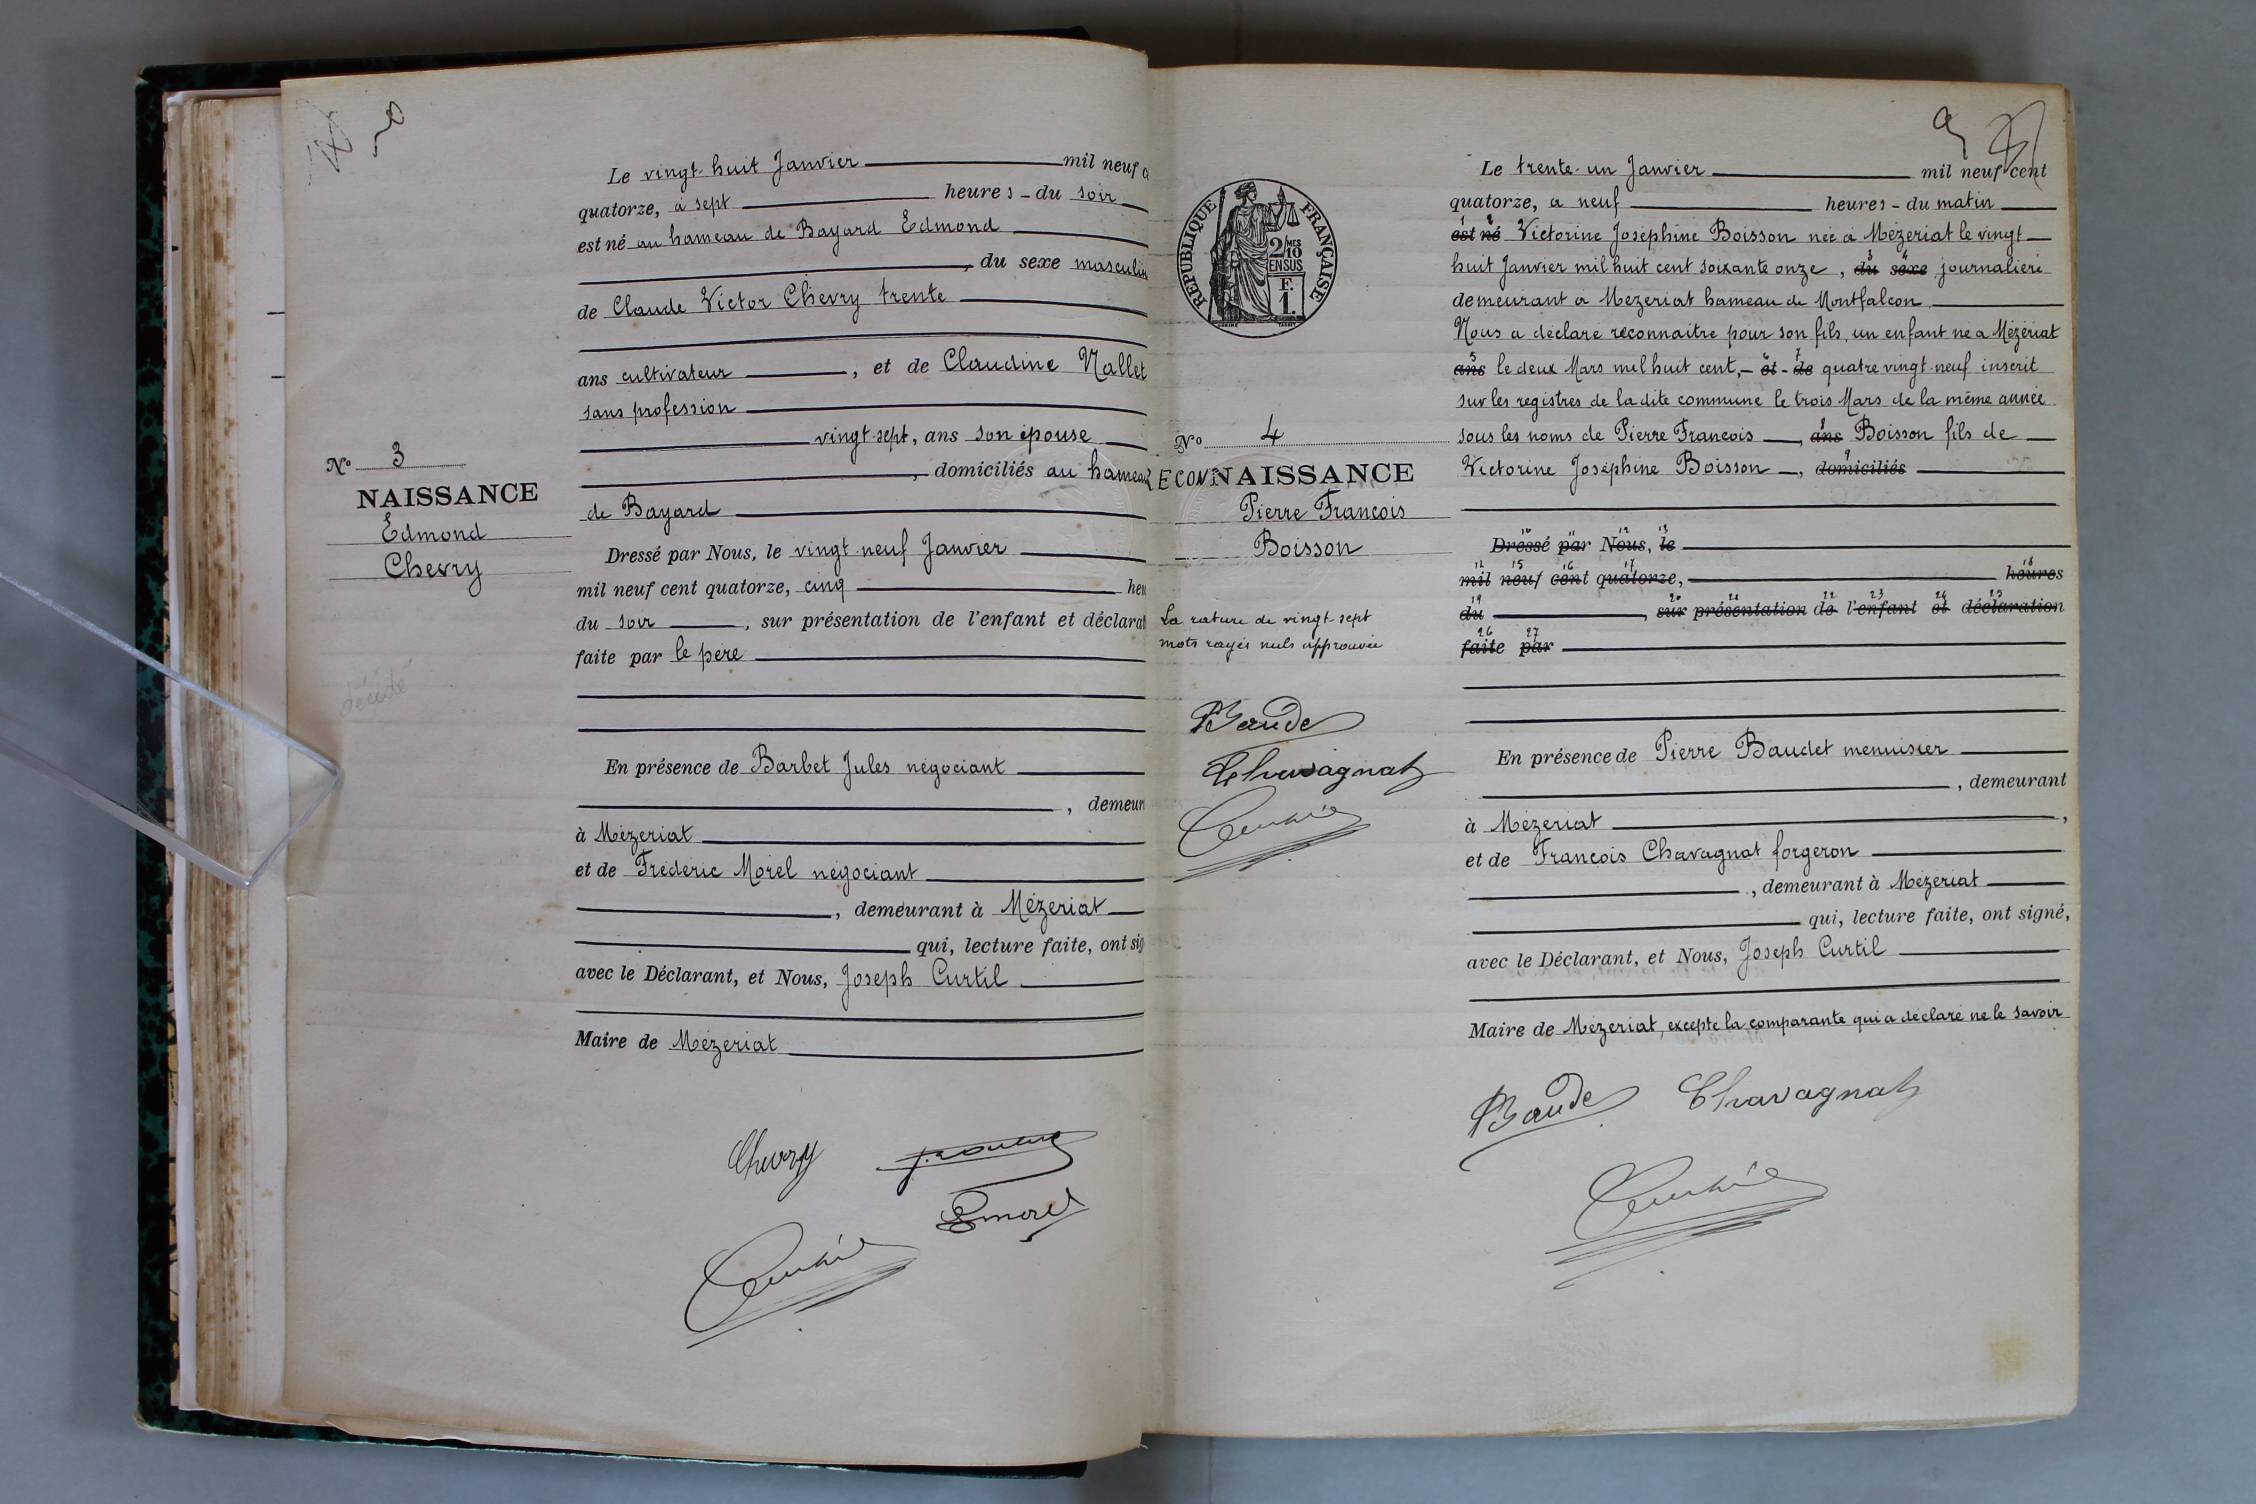 Le vingt-huit Janvier mil neuf c
quatorze, à sept heures - du soir
est né au hameau de Bayard Edmond
, du sexe masculin
de Claude Victor Chevry trente
ans cultivateur , et de Claudine Nallet
sans profession
vingt-sept, ans son épouse
, domiciliés au hameau
de Bayard
Dressé par Nous, le vingt-neuf Janvier
mil neuf cent quatorze, cinq heu
du soir , sur présentation de l'enfant et déclarat
faite par le père
En présence de Barbet Jules négociant
, demeur
à Mézériat
et de Frédéric Morel négociant
, demeurant à Mézériat
qui, lecture faite, ont sig
avec le Déclarant, et Nous, Joseph Curtil
Maire de Mézériat
No 3
NAISSANCE
Edmond
Chevry
décédé
Chevry
Morel
9
RÉPUBLIQUE FRANÇAISE
2/10 MES
EN SUS
F.
1.
No 4
RECONNAISSANCE
Pierre François
Boisson
La rature de vingt-sept
mots rayés nuls approuvée
Baude
Chavagnat
Le trente-un Janvier mil neuf cent
quatorze, à neuf heures - du matin
1 2
est né Victorine Joséphine Boisson née à Mézériat le vingt
3 4
huit Janvier mil huit cent soixante onze, du sexe journalière
demeurant à Mézériat hameau de Montfalcon
Nous a déclaré reconnaitre pour son fils, un enfant né à Mézériat
5 6 7
ans le deux Mars mil huit cent, - et - de quatre vingt-neuf inscrit
sur les registres de la dite commune le trois Mars de la même année
8
sous les noms de Pierre François , ans Boisson fils de
9
Victorine Joséphine Boisson , domiciliés
10 11 12 13
Dressé par Nous, le
12 15 16 17 18
mil neuf cent quatorze, heures
19 20 21 22 23 24 25
du , sur présentation de l'enfant et déclaration
26 27
faite par
En présence de Pierre Baudet menuisier
, demeurant
à Mézériat ,
et de François Chavagnat forgeron
, demeurant à Mézériat
qui, lecture faite, ont signé,
avec le Déclarant, et Nous, Joseph Curtil
Maire de Mézériat, excepté la comparante qui a déclaré ne le savoir
Baude Chavagnat